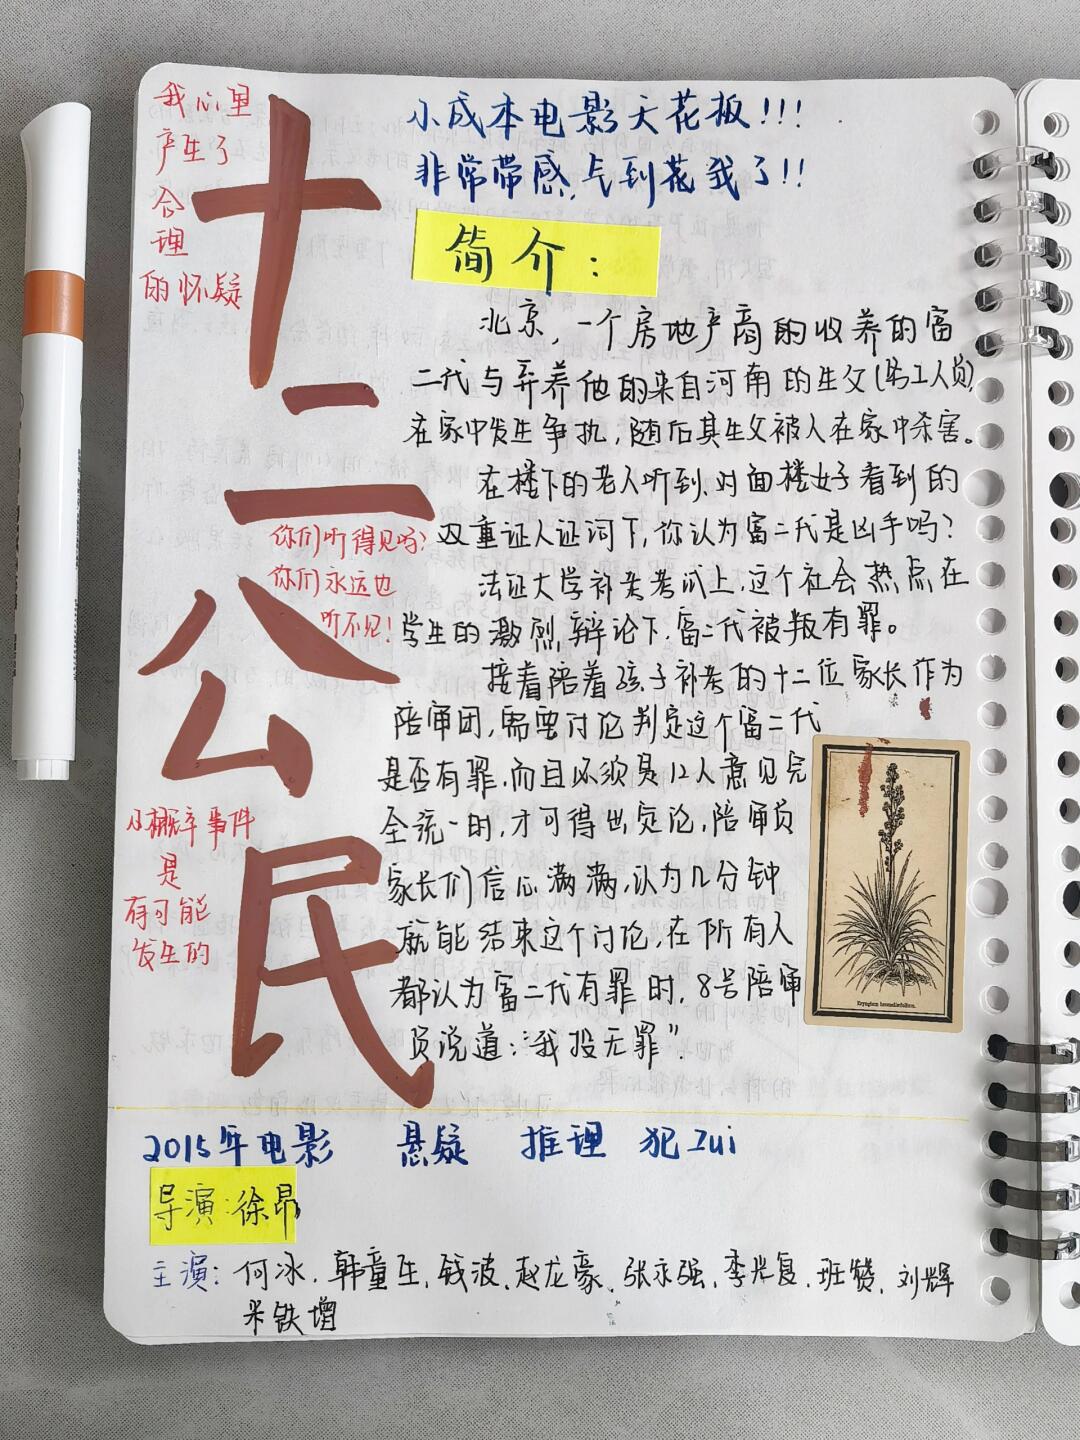 我心里
产生了
合理
的怀疑
十二公民
小成本电影天花板!!!
非常带感,气到花我了!!
简介:
北京,一个房地产商的收养的富
二代与弃养他的来自河南的生父(务工人员)
在家中发生争执,随后其生父被人在家中杀害。
在楼下的老人听到、对面楼女子看到的
双重证人证词下,你认为富二代是凶手吗?
法证大学补关考试上,这个社会热点在
学生的激烈辩论下,富二代被叛有罪。
接着陪着孩子补考的十二位家长作为
陪审团,需要讨论判定这个富二代
是否有罪.而且必须是12人意见完
全统一时,才可得出定论,陪审员
家长们信心满满,认为几分钟
就能结束这个讨论,在所有人
都认为富二代有罪时,8号陪审
员说道:“我投无罪”.
你们听得见吗?
你们永远也
听不见!
小概率事件
是
有可能
发生的
Eryngium bromeliifolium.
2015年电影 悬疑 推理 犯Zui
导演:徐昂
主演:何冰、韩童生、钱波、赵龙豪、张永强、李光复、班赞、刘辉
米铁增